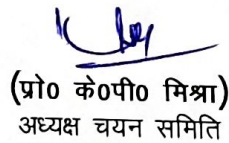 (प्रो0 के0पी0 मिश्रा)
अध्यक्ष चयन समिति